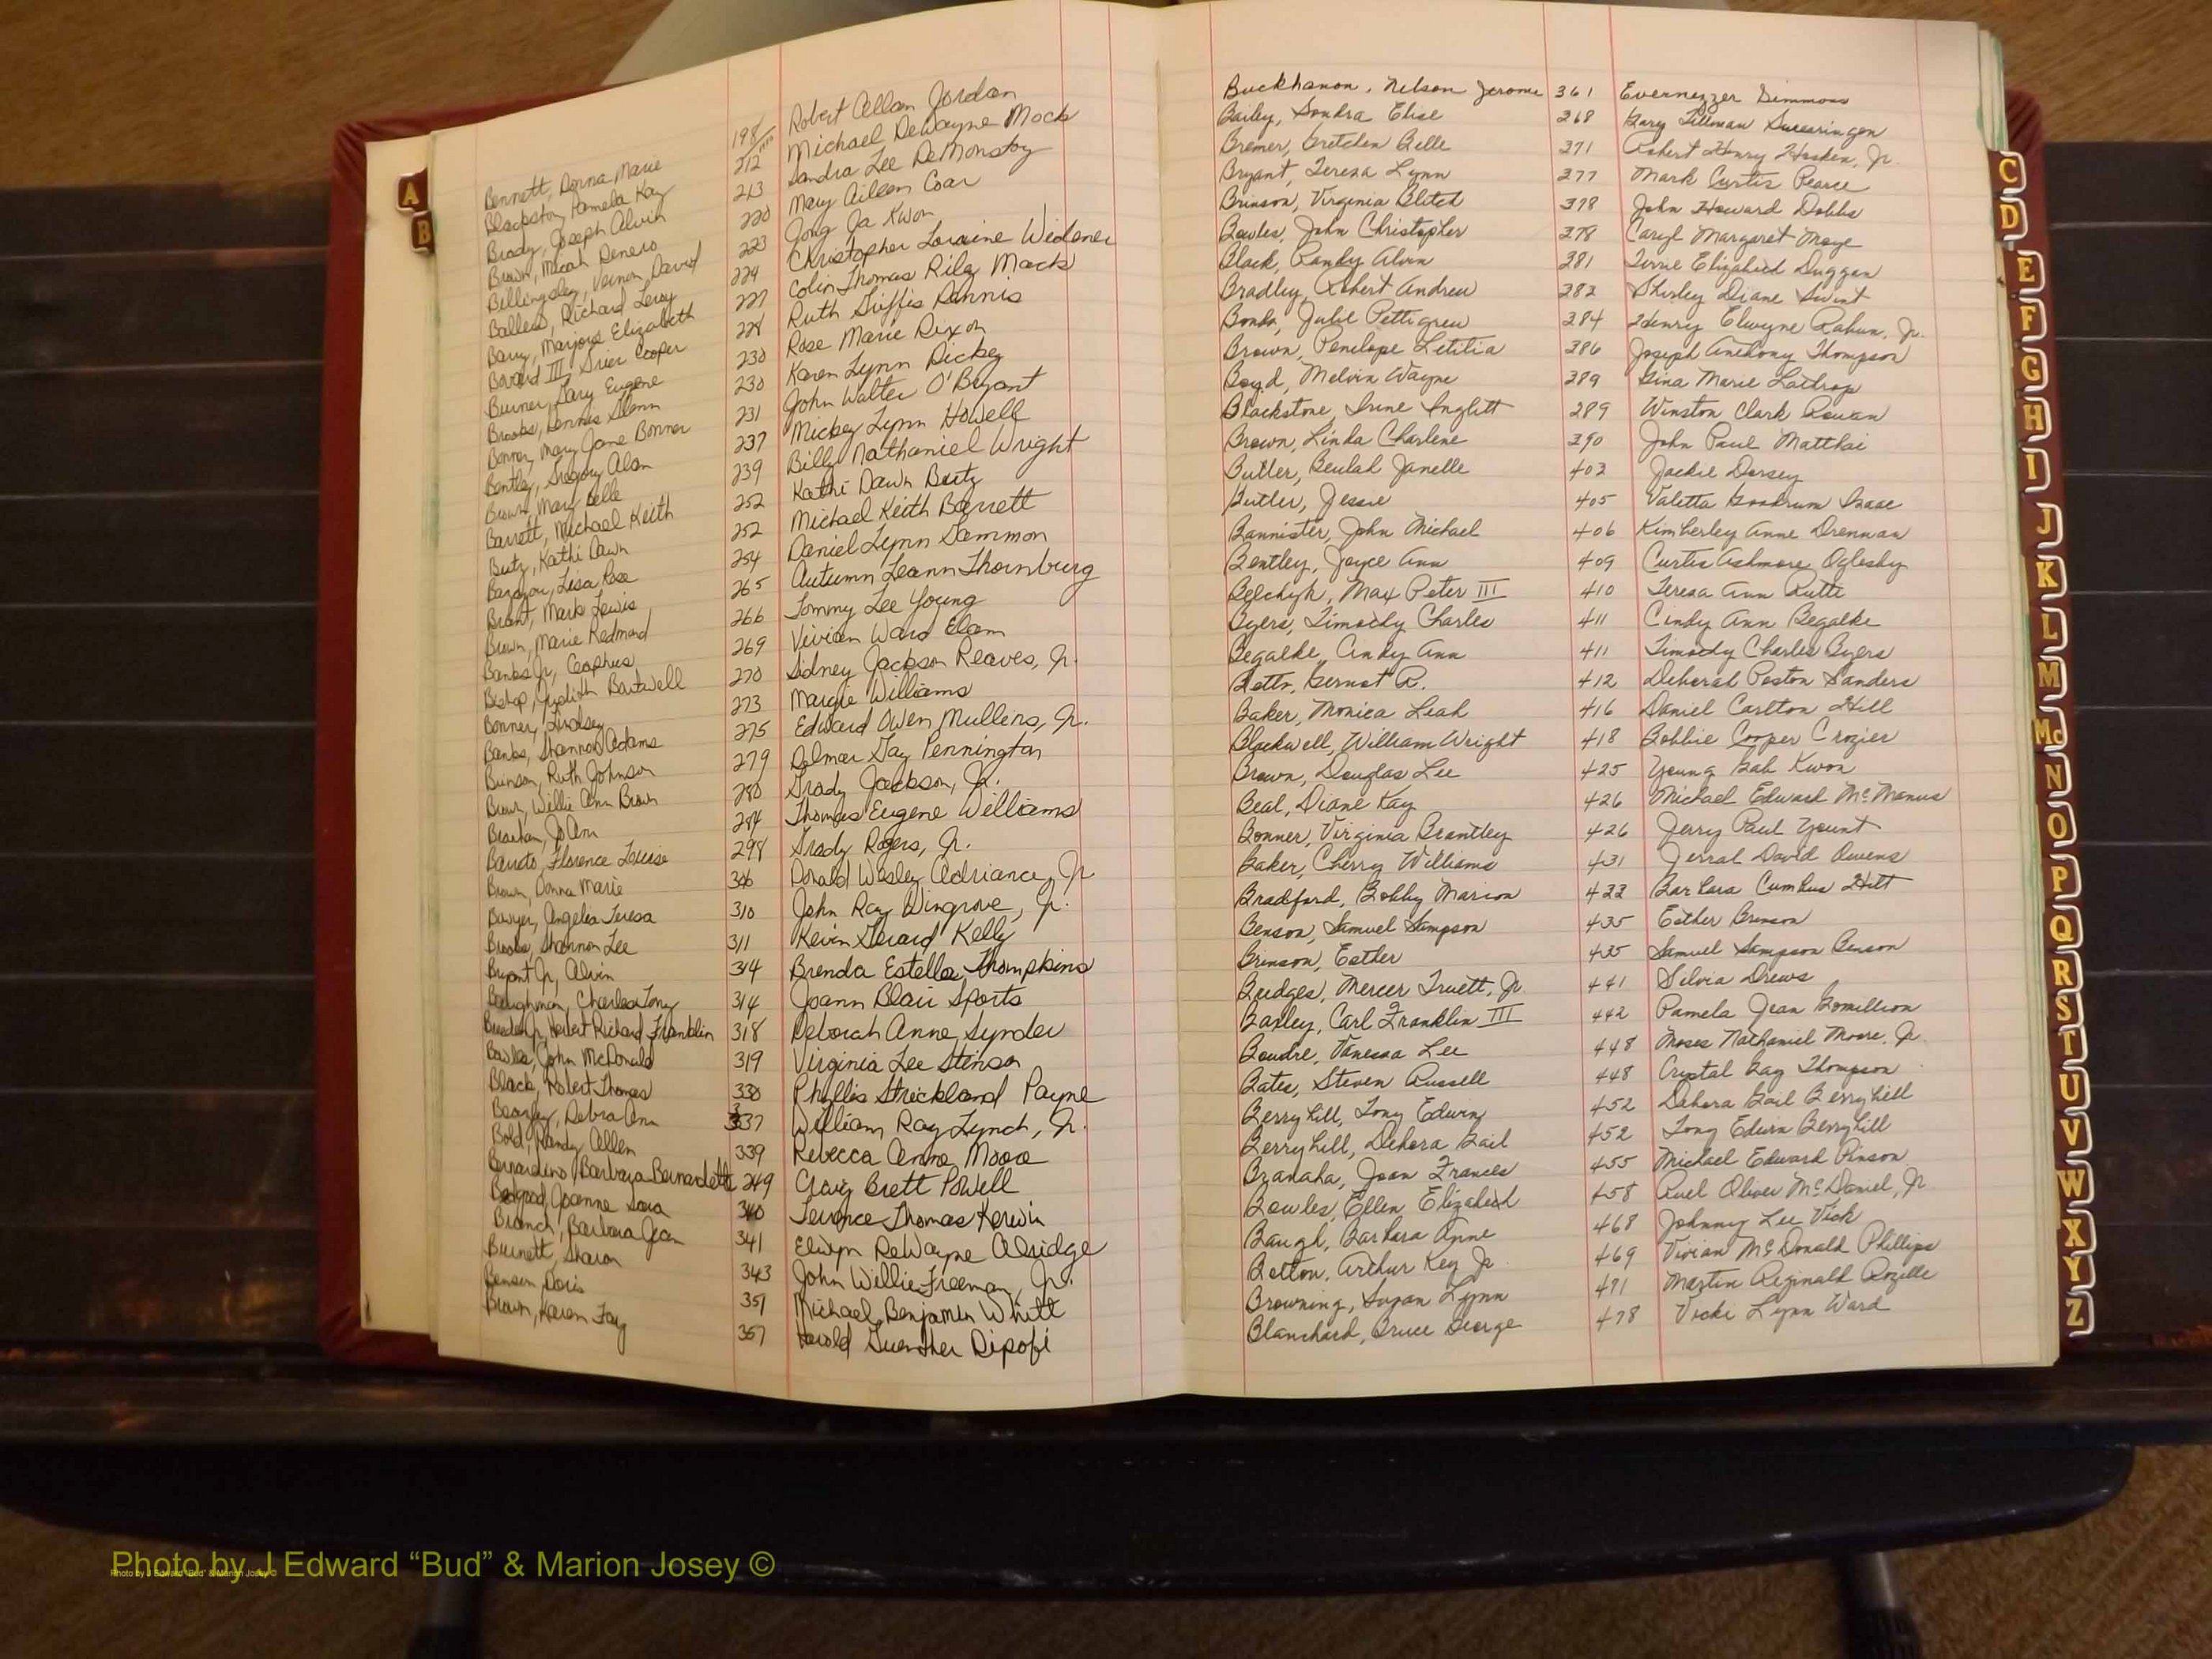 A
B
Bennett, Donna Marie 198 Robert Allan Jordan
Blackston, Pamela Kay 212 Michael DeWayne Mock
Brady, Joseph Alvin 213 Sandra Lee
Brown, Micah 220 Mary Aileen Coar
Billingsley, Vernon David 223 Jong Ja Kwon
Richard Leroy 224 Christopher Loraine Widener
Barry, Marjorie Elizabeth 227 Colin Thomas Riley Mack
III, Cooper 228 Ruth Griffis Dennis
Burner, Gary Eugene 230 Rose Marie Dixon
Brooks, Dennis Glenn 230 Karen Lynn Dickey
Bonner, Mary Jane Bonner 231 John Walter O'Bryant
Bentley, Gregory Alan 237 Mickey Lynn Howell
Brown, Mary Belle 239 Billy Nathaniel Wright
Barrett, Michael Keith 252 Kathi Dawn Butz
Butz, Kathi Dawn 252 Michael Keith Barrett
Lisa Rose 254 Daniel Lynn Dammon
Brant, Mark Lewis 265 Autumn Leann Thornburg
Brown, Marie Redmond 266 Tommy Lee Young
Banks Jr, Ceophus 269 Vivian Ward Elam
Bishop, Judith Bartwell 270 Sidney Jackson Reaves, Jr.
Bonner, Lindsey 273 Margie Williams
Banks, Shannon Adams 275 Edward Owen Mullins, Jr.
Brinson, Ruth Johnson 279 Delmar Gay Pennington
Brown, Willie Ann Brown 280 Grady Jackson, Jr.
Jo Ann 284 Thomas Eugene Williams
Florence Louise 298 Grady Rogers, Jr.
Brown, Donna Marie 306 Donald Wesley Adriance, Jr
Bowyer, Angelia Teresa 310 John Ray Wingrove, Jr.
Brooks, Shannon Lee 311 Kevin Gerard Kelly
Bryant Jr, Alvin 314 Brenda Estelle Thompkins
Baughman, Charles Tony 314 Joann Blair Sports
Herbert Richard Franklin 318 Deborah Anne Synder
Bowles, John McDonald 319 Virginia Lee Stinson
Black, Robert Thomas 330 Phyllis Strickland Payne
Beazley, Debra Ann 337 William Ray Lynch, Jr.
Bold, Randy Allen 339 Rebecca Anne Moore
Bernardino, Barbara Bernardette 249 Craig Brett Powell
Joanne Sara 340 Terence Thomas Kerwin
Branch, Barbara Jean 341 Elwyn DeWayne Alridge
Burnett, Sharon 343 John Willie Freeman, Jr.
Benson, Doris 351 Michael Benjamin Whitt
Brown, Karen Fay 357 Harold Guenther Dipofi
Buckhanon, Nelson Jerome 361 Evernezzer Simmons
Bailey, Sondra Elise 368 Gary Tillman Swearingen
Bremer, Gretchen Belle 371 Robert Henry Hosken, Jr.
Bryant, Teresa Lynn 377 Mark Curtis Pearce
Brinson, Virginia Blitch 378 John Howard Dobbs
Bowles, John Christopher 378 Caryl Margaret Moye
Black, Randy Alvin 381 Terrie Elizabeth Duggan
Bradley, Robert Andrew 383 Shirley Diane Swint
Bonds, Julie Pettigrew 384 Henry Elwyne Rahun, Jr.
Brown, Penelope Letitia 386 Joseph Anthony Thompson
Boyd, Melvin Wayne 389 Gina Marie Lathrop
Blackstone, Irine Inglett 389 Winston Clark Rowan
Brown, Linda Charlene 390 John Paul Matthai
Butler, Beulah Janelle 403 Jackie Dorsey
Butler, Jessie 405 Valetta Goodrum Isaac
Bannister, John Michael 406 Kimberley Anne Drennan
Bentley, Joyce Ann 409 Curtis Ashmore Oglesby
Belchyk, Max Peter III 410 Teresa Ann Rutti
Byers, Timothy Charles 411 Cindy Ann Begalke
Begalke, Cindy Ann 411 Timothy Charles Byers
Betts, Gernot R. 412 Deborah Poston Sanders
Baker, Monica Leah 416 Daniel Carlton Hill
Blackwell, William Wright 418 Bobbie Cooper Crozier
Brown, Douglas Lee 425 Young Kwon
Beal, Diane Kay 426 Michael Edward McManus
Bonner, Virginia Brantley 426 Jerry Paul Yount
Baker, Cherry Williams 431 Jerral David Owens
Bradford, Bobby Marion 433 Barbara Cumbus Hilt
Benson, Samuel Sampson 435 Esther Brinson
Brinson, Esther 435 Samuel Sampson Benson
Bridges, Mercer Truett, Jr. 441 Silvia Drews
Baxley, Carl Franklin III 442 Pamela Jean Gomillion
Boudre, Vanessa Lee 448 Moses Nathaniel Moore, Jr.
Bates, Steven Russell 448 Crystal Gay Thompson
Berryhill, Tony Edwin 452 Debora Gail Berryhill
Berryhill, Debora Gail 452 Tony Edwin Berryhill
Branaha, Joan Frances 455 Michael Edward Pinson
Bowles, Ellen Elizabeth 458 Ruel Oliver McDaniel, Jr
Baugh, Barbara Anne 468 Johnny Lee Vick
Botton, Arthur Key Jr 469 Vivian McDonald Phillips
Browning, Susan Lynn 471 Martin Reginald Rozelle
Blanchard, Bruce George 478 Vicki Lynn Ward
C
D
E
F
G
H
I
J
K
L
M
Mc
N
O
P
Q
R
S
T
U
V
W
X
Y
Z
Photo by J Edward “Bud” & Marion Josey ©
Photo by J Edward “Bud” & Marion Josey ©